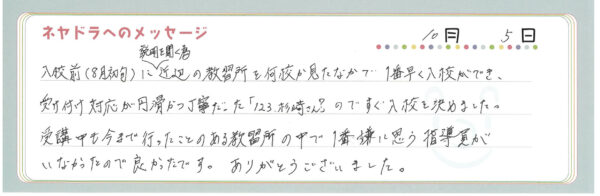 ネヤドラへのメッセージ
10月 5日
説明を聞く為
入校前(8月初旬)に近辺の教習所を何校か見たなかで1番早く入校ができ、
受け付け対応が円滑かつ丁寧だった「123杉崎さん」のですぐ入校を決めました。
受講中も今まで行ったことのある教習所の中で1番嫌に思う指導員が
いなかったので良かったです。ありがとうございました。